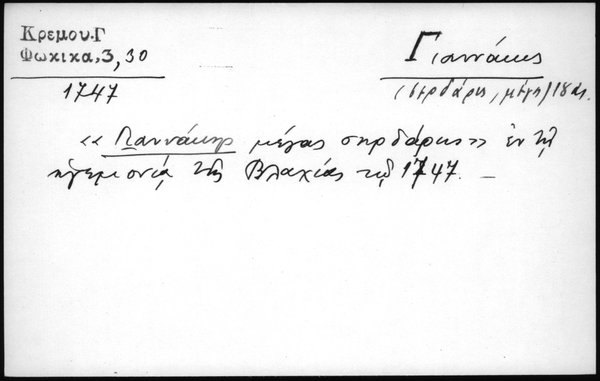 Κρεμου.Γ
Φωκικα,3,30
1747
Γιαννάκης
(σερδάρης, μέγας) 18 αι.
«Γιαννάκης μέγας σερδάρης» ἐν τῇ
ἡγεμονίᾳ τῆς Βλαχίας τῷ 1747. –